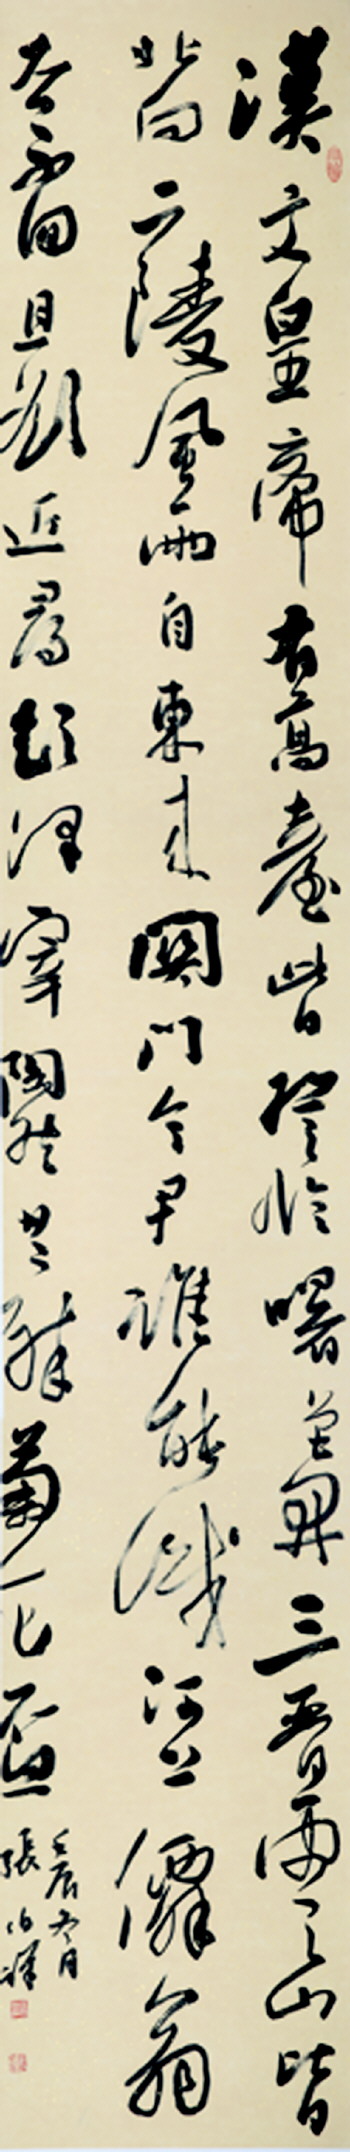 漢文皇帝有高臺此日登臨曙色開三晉雲山皆
北向二陵風雨自東來關門令尹誰能識河上僊翁
去不回且欲近尋彭澤宰陶然共醉菊花盃
壬辰月
張